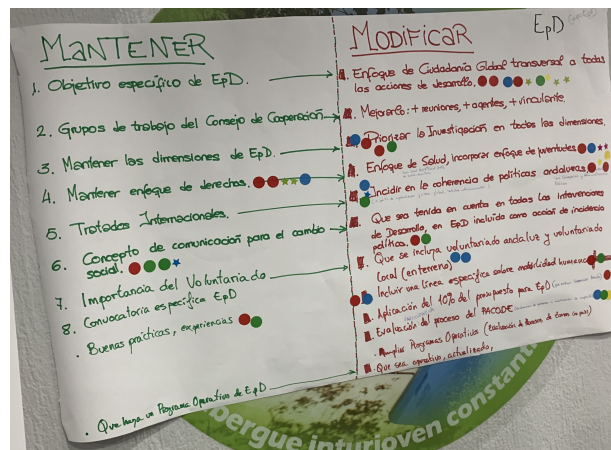 MANTENER
1. Objetivo específico de EpD.
2. Grupos de trabajo del Consejo de Cooperación
3. Mantener las dimensiones de EpD.
4. Mantener enfoque de derechos.
5. Tratados Internacionales.
6. Concepto de comunicación para el cambio
social.
7. Importancia del Voluntariado
8. Convocatoria específica EpD
. Buenas prácticas, experiencias
. Que haya un Programa Operativo de EpD
MODIFICAR
EpD
Enfoque de Ciudadanía Global transversal a todas
las acciones de desarrollo.
Mejorarlo: + reuniones, + agentes, + vinculante.
Priorizar la Investigación en todas las dimensiones.
Enfoque de Salud, incorporar enfoque de juventudes
Incidir en la coherencia de políticas andaluzas
Que sea tenida en cuenta en todas las intervenciones
de Desarrollo, en EpD incluida como acción de incidencia
política.
Que se incluya voluntariado andaluz y voluntariado
local (en terreno)
Incluir una línea específica sobre movilidad humana
Aplicación del 10% del presupuesto para EpD
Evaluación del proceso del PACODE
. Ampliar Programas Operativos
. Que sea operativo, actualizado,
albergue inturjoven constant